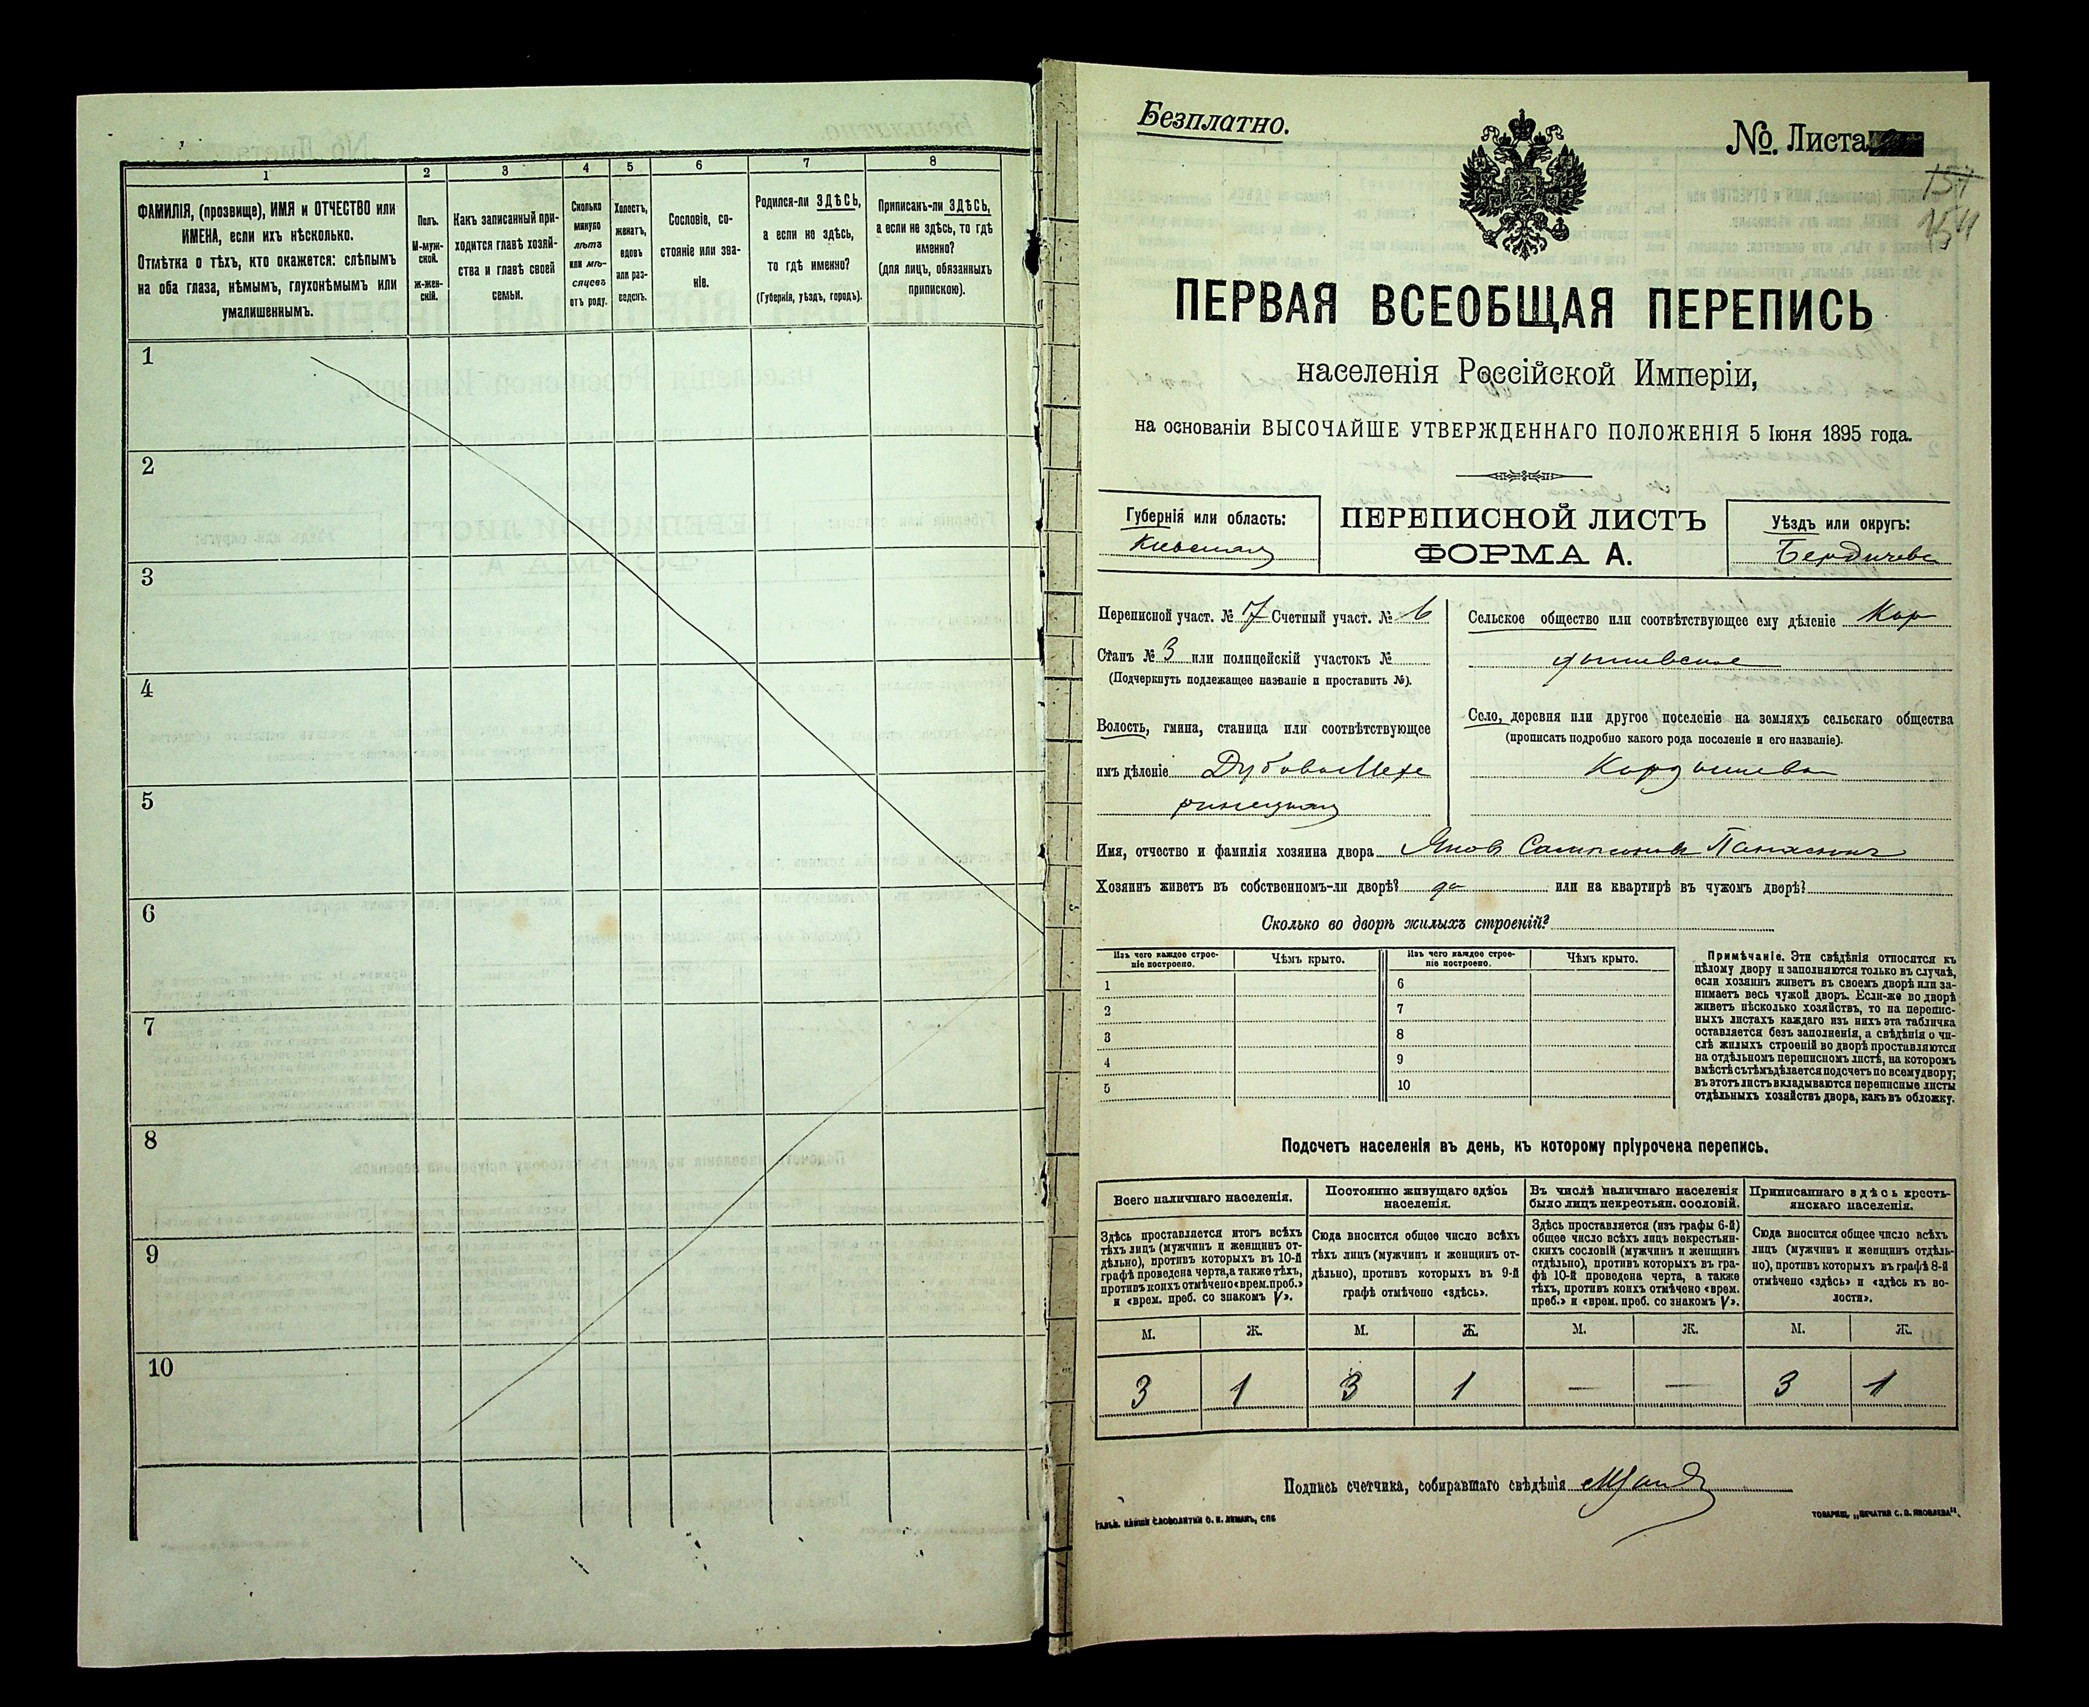 1
2
3
4
5
6
7
8
ФАМИЛІЯ, (прозвище), ИМЯ и ОТЧЕСТВО или
ИМЕНА, если ихъ нѣсколько.
Отмѣтка о тѣхъ, кто окажется: слѣпымъ
на оба глаза, нѣмымъ, глухонѣмымъ или
умалишеннымъ.
Полъ.
М-муж-
ской.
ж-жен-
скій.
Какъ записанный при-
ходится главѣ хозяй-
ства и главѣ своей
семьи.
Сколько
минуло
лѣтъ
или мѣ-
сяцевъ
отъ роду.
Холостъ,
женатъ,
вдовъ
или раз-
веденъ.
Сословіе, со-
стояніе или зва-
ніе.
Родился-ли ЗДѢСЬ,
а если не здѣсь,
то гдѣ именно?
(Губернія, уѣздъ, городъ).
Приписанъ-ли ЗДѢСЬ,
а если не здѣсь, то гдѣ
именно?
(для лицъ, обязанныхъ
припискою).
1
2
3
4
5
6
7
8
9
10
Безплатно.
№. Листа
ПЕРВАЯ ВСЕОБЩАЯ ПЕРЕПИСЬ
населенія Россійской Имперіи,
на основаніи ВЫСОЧАЙШЕ УТВЕРЖДЕННАГО ПОЛОЖЕНІЯ 5 Іюня 1895 года.
Губернія или область:
Кіевская
ПЕРЕПИСНОЙ ЛИСТЪ
ФОРМА А.
Уѣздъ или округъ:
Бердичевс
Переписной участ. № 7 Счетный участ. № 6
Станъ № 3 или полицейскій участокъ №
(Подчеркнуть подлежащее названіе и проставить №).
Волость, гмина, станица или соотвѣтствующее
имъ дѣленіе Дубово Меже
ринецкая
Сельское общество или соотвѣтствующее ему дѣленіе Кор
дышевское
Село, деревня или другое поселеніе на земляхъ сельскаго общества
(прописать подробно какого рода поселеніе и его названіе).
Кордышевка
Имя, отчество и фамилія хозяина двора Яковъ Самсоновъ Панасюкъ
Хозяинъ живетъ въ собственномъ-ли дворѣ? да или на квартирѣ въ чужомъ дворѣ?
Сколько во дворѣ жилыхъ строеній?
Изъ чего каждое строе-
ніе построено.
Чѣмъ крыто.
Изъ чего каждое строе-
ніе построено.
Чѣмъ крыто.
1 6
2 7
3 8
4 9
5 10
Примѣчаніе. Эти свѣдѣнія относятся къ
цѣлому двору и заполняются только въ случаѣ,
если хозяинъ живетъ въ своемъ дворѣ или за-
нимаетъ весь чужой дворъ. Если-же во дворѣ
живетъ нѣсколько хозяйствъ, то на перепис-
ныхъ листахъ каждаго изъ нихъ эта табличка
оставляется безъ заполненія, а свѣдѣнія о чи-
слѣ жилыхъ строеній во дворѣ проставляются
на отдѣльномъ переписномъ листѣ, на которомъ
вмѣстѣ съ тѣмъ дѣлается подсчетъ по всему двору;
въ этотъ листъ вкладываются переписные листы
отдѣльныхъ хозяйствъ двора, какъ въ обложку.
Подсчетъ населенія въ день, къ которому пріурочена перепись.
Всего наличнаго населенія.
Постоянно живущаго здѣсь
населенія.
Въ числѣ наличнаго населенія
было лицъ некрестьян. сословій.
Приписаннаго здѣсь кресть-
янскаго населенія.
Здѣсь проставляется итогъ всѣхъ
тѣхъ лицъ (мужчинъ и женщинъ от-
дѣльно), противъ которыхъ въ 10-й
графѣ проведена черта, а также тѣхъ,
противъ коихъ отмѣчено «врем. преб.»
и «врем. преб. со знакомъ V».
Сюда вносится общее число всѣхъ
тѣхъ лицъ (мужчинъ и женщинъ от-
дѣльно), противъ которыхъ въ 9-й
графѣ отмѣчено «здѣсь».
Здѣсь проставляется (изъ графы 6-й)
общее число всѣхъ лицъ некрестьян-
скихъ сословій (мужчинъ и женщинъ
отдѣльно), противъ которыхъ въ гра-
фѣ 10-й проведена черта, а также
тѣхъ, противъ коихъ отмѣчено «врем.
преб.» и «врем. преб. со знакомъ V».
Сюда вносится общее число всѣхъ
лицъ (мужчинъ и женщинъ отдѣль-
но), противъ которыхъ въ графѣ 8-й
отмѣчено «здѣсь» и «здѣсь къ во-
лости».
М. Ж. М. Ж. М. Ж. М. Ж.
3 1 3 1 — — 3 1
Подпись счетчика, собиравшаго свѣдѣнія
СЛОВОЛИТНИ О. И. ЛЕМАНЪ, СПБ
ТОВАРИЩ. „ПЕЧАТНЯ С. П. ЯКОВЛЕВА“.